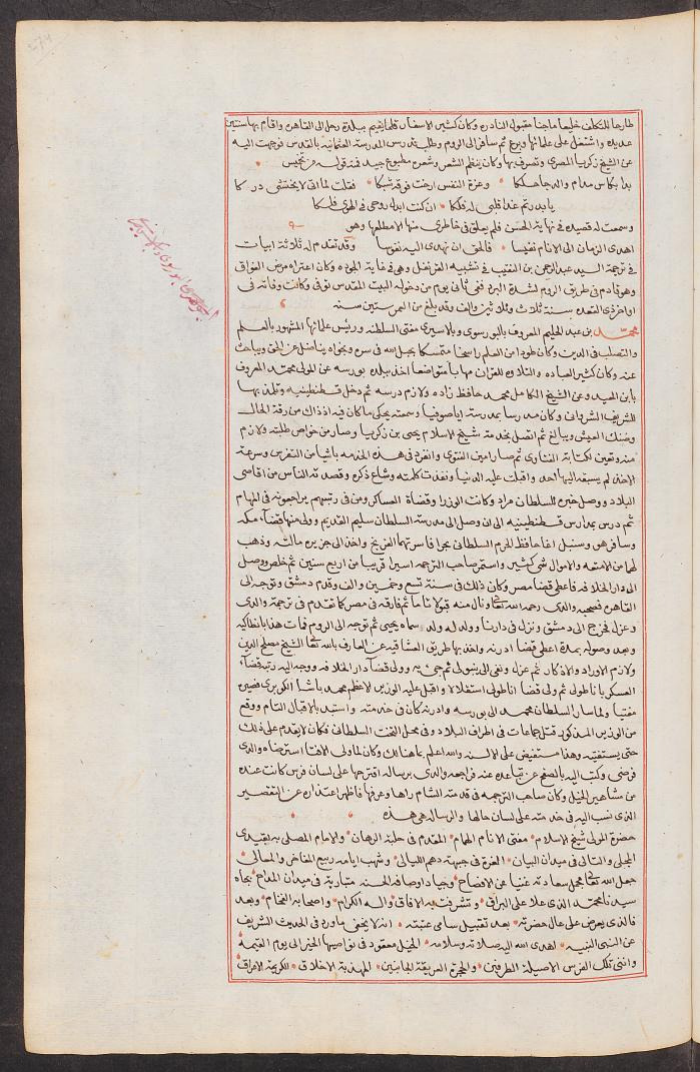 طارحا للتكلف خليعا ماجنا مقبول النادره وكان كثير الاسفار قلما يقيم ببلدة رحل الى القاهره واقام بها سنين
عديده واشتغل على علمائها وبرع ثم سافر الى الروم وطلب تدريس المدرسه العثمانيه بالقدس فوجهت اليه
عن الشيخ زكريا المصرى وتصرف بها وكان ينظم الشعر وشعره مطبوع جيد فمنه قوله عن تخميس
بدا بكاس مدام والدجا حلكا وعزة النفس ارخت فوقه شبكا فقلت لما اتى لا يختشى دركا
يا بدر تم غدا قلبى له فلكا ان كنت ابدلت روحى فى الهوى فلكا
وسمعت له قصيده فى نهاية الحسن فلم يعلق فى خاطرى منها الا مطلعها وهو
اهدى الزمان الى الانام نفيسا فالحق ان نهدى اليه نفوسا وقد تقدم له ثلاثة ابيات
فى ترجمة السيد عبد الرحمن بن النقيب فى تشبيه القرنفل وهى فى غاية الجوده وكان اعتراه مرض الفواق
وهو قادم فى طريق الروم لشدة البرد ففى ثانى يوم من دخوله البيت المقدس توفى وكانت وفاته فى
اواخر ذى القعده سنة ثلاث وثلاثين والف وقد بلغ من العمر ستين سنه
محمد بن عبد الحليم المعروف بالبورسوى وبالاسيرى مفتى السلطنه ورئيس علمائها المشهور بالعلم
والتصلب فى الدين وكان طودا من العلم راسخا متمسكا بحبل الله فى سره ونجواه يناضل عن الحق ويباحث
عنه وكان كثير العباده والتلاوه للقران مهابا متواضعا اخذ ببلده بورسه عن المولى محمد المعروف
بابن المعيد وعن الشيخ الكامل محمد حافظ زاده ولازم درسه ثم دخل قسطنطينيه وتلمذ بها
للشريف الشروانى وكان مدرسا بمدرسة اياصوفيا وسمعته يحكى ما كان فيه اذ ذاك من رقة الحال
وضنك العيش ويبالغ ثم اتصل بخدمة شيخ الاسلام يحيى بن زكريا وصار من خواص طلبته ولازم
منه وتعين لكتابة الفتاوى ثم صار امين الفتوى وانفرد فى هذه الخدمه باشيا من التفرس وسرعة
الاخذ لم يسبقه اليها احد واقبلت عليه الدنيا ونفذت كلمته وشاع ذكره وقصدته الناس من اقاصى
البلاد ووصل خبره للسلطان مراد وكانت الوزرا وقضاة العساكر ومن فى رتبتهم يراجعونه فى المهام
ثم درس بمدارس قسطنطينيه الى ان وصل الى مدرسة السلطان سليم القديم وولى منها قضاء مكه
وسافر هو وسنبل اغا حافظ الحرم السلطانى بحرا فاسرتهما الفرنج واخذ الى جزيره مالته وذهب
لهما من الامتعه والاموال شى كثير واستمر صاحب الترجمه اسيرا قريبا من اربع سنين ثم خلص ووصل
الى دار الخلافه فاعطى قضا مصر وكان ذلك فى سنة تسع وخمسين والف وقدم دمشق وتوجه الى
القاهره فصحبه والدى رحمه الله تعالى ونال منه قبولا تاما ثم فارقه فى مصر كما تقدم فى ترجمة والدى
وعزل فخرج الى دمشق ونزل فى دارنا وولد له ولد سماه يحيى ثم توجه الى الروم فمات هذا بانطاكيه
وبعد وصوله بمدة اعطى قضا ادرنه واخذ بها طريق العشاقيه عن العارف بالله تعالى الشيخ مصلح الدين
ولازم الاوراد والاذكار ثم عزل ونفى الى ينبولى ثم جئ به وولى قضا دار الخلافه ووجه اليه رتبة قضاء
العسكر باناطولى ثم ولى قضا اناطولى استقلالا واقبل عليه الوزير الاعظم محمد باشا الكوبرى فصيره
مفتيا ولما سار السلطان محمد الى بورسه وادرنه كان فى خدمته واستبد بالاقبال التام ووقع
من الوزير المذكور قتل جماعات فى اطراف البلاد وفى محل التخت السلطانى فكان لا يقدم على ذلك
حتى يستفتيه وهذا مستفيض على الالسنه والله اعلم بما هنالك وكان لما ولى الافتا استرضاه والدى
فرضى وكتب اليه بالصفح عن تباعده عنه فراجعه والدى برساله اقترحها على لسان فرس كانت عنده
من مشاهير الخيل وكان صاحب الترجمه فى قدمته الشام راها وعرفها فاظهر اعتذاره عن التقصير
الذى نسب اليه فى خدمته على لسان حالها والرساله هى هذه
حضرة المولى شيخ الاسلام مفتى الانام الهمام المقدم فى حلبة الرهان والامام المصلى به يقيدى
المجلى والتالى فى ميدان البيان الغرة فى جبهة دهم الليالى وشهب ايامه ربيع المفاخر والمعالى
جعل الله تعالى مجمل سعادته غنيا عن الافصاح وجياد اوصافه الحسنه متبارية فى ميدان المداح بجاه
سيدنا محمد الذى علا على البراق وتشرفت به الافاق واله الكرام واصحابه الفخام وبعد
فالذى يعرض على عال حضرته بعد تقبيل سامى عتبته انه لا يخفى ما ورد فى الحديث الشريف
عن النبى النبيه اهدى الله اليه صلاته وسلامه الخيل معقود فى نواصيها الخير الى يوم القيمه
واننى تلك الفرس الاصيلة الطرفين والحجرة العريقة الجانبين المهذبة الاخلاق الكريمة الاعراق